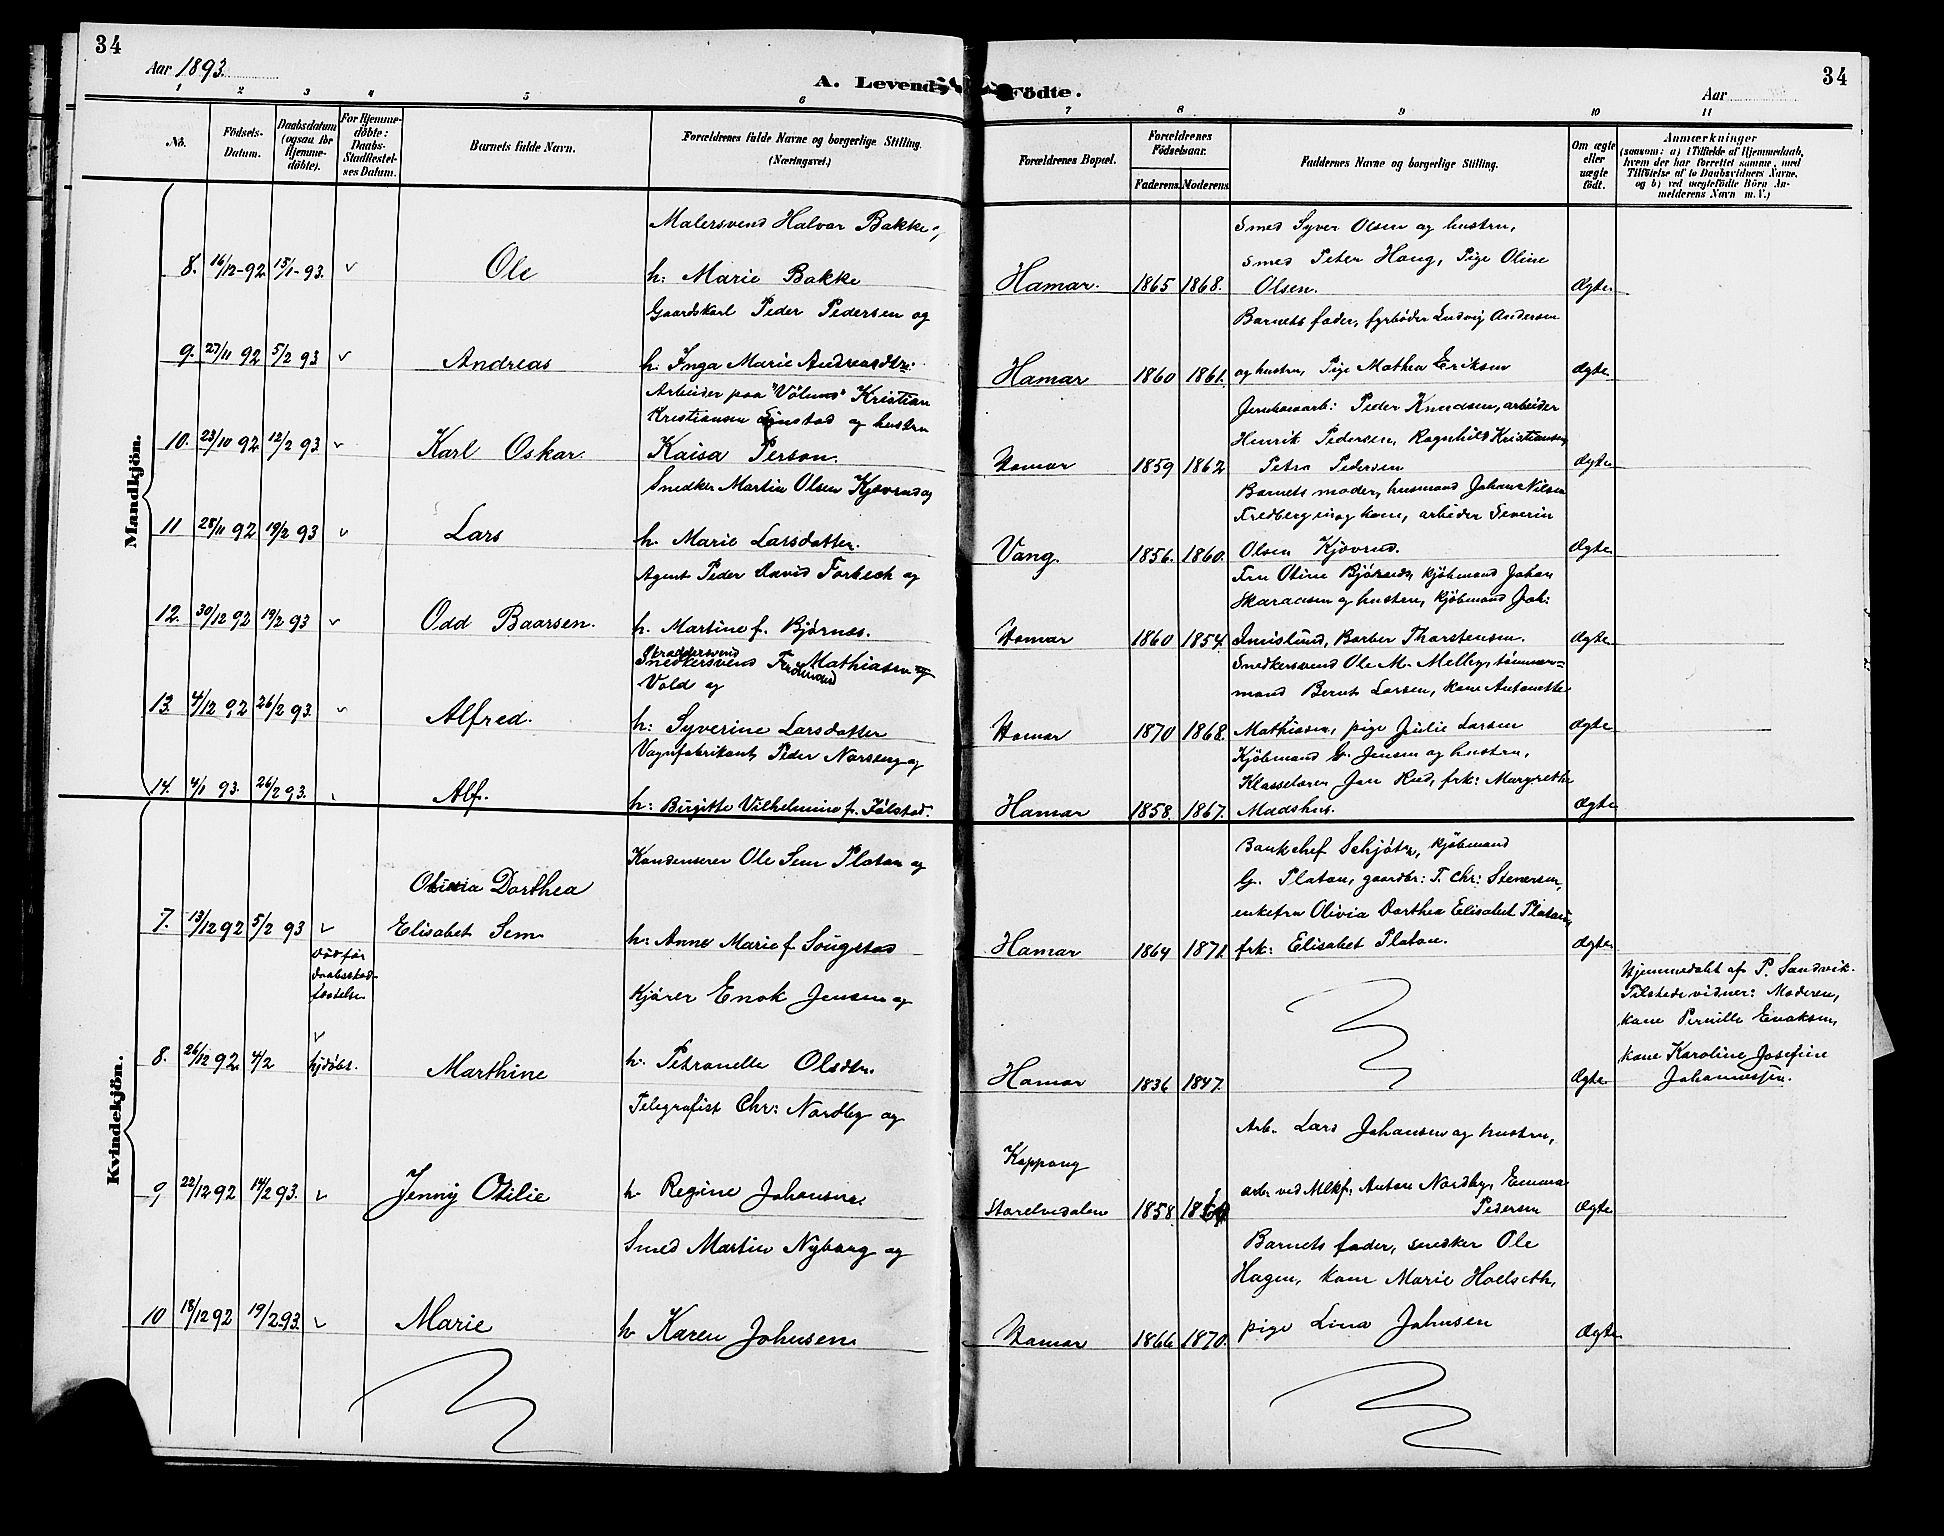 34
34
Aar 1893.
A. Levende Födte.
Aar
1 2 3 4 5 6 7 8 9 10 11
No.
Födsels-Datum.
Daabsdatum (ogsaa for Hjemmedöbte).
For Hjemmedöbte: Daabs-Stadfæstelses Datum.
Barnets fulde Navn.
Forældrenes fulde Navne og borgerlige Stilling.
(Næringsvei.)
Forældrenes Bopæl.
Forældrenes Födselsaar.
Faderens. Moderens.
Faddernes Navne og borgerlige Stilling.
Om ægte eller uægte födt.
Anmærkninger
(saasom: a) i Tilfælde af Hjemmedaab,
hvem der har forrettet samme, med
Tilföielse af to Daabsvidners Navne,
og b) ved uægtefödte Börn Anmelderens Navn m. V.)
Mandkjön.
Malersvend Halvor Bakke og
8. 16/12-92 15/1-93. Ole
h: Marie Bakke
Hamar. 1865 1868.
Smed Syver Olsen og hustru,
Smed Peter Haug, Pige Oline
Olsen.
Ægte.
Gaardskarl Peder Pedersen og
9. 27/11 92 5/2 93 Andreas
h: Inga Marie Andreasdtr:
Hamar 1860 1861.
Barnets fader, fyrbøder Ludvig Andersen
og hustru, Pige Mathea Eriksen
Ægte
Arbeider paa "Vølund" Kristian
Kristiansen og hustru
10. 23/10 92 12/2 93 Karl Oskar
Kaisa Person.
Hamar 1859 1862
Jernbanearb: Peder Knudsen, arbeider
Henrik Pedersen, Ragnhild Kristiansen
Petra Pedersen
Ægte
Snedker Martin Olsen Kjøvrud og
11 28/11 92 19/2 93 Lars
h. Marie Larsdatter.
Vang. 1856. 1860.
Barnets moder, husmand Johan Nilsen
og kone, arbeider Severin
Olsen Kjøvrud.
Ægte
Agent Peder David Forbech og
12. 30/12 92 19/2 93 Odd Baarsen.
h. Martine f. Bjørnæs.
Hamar 1860 1854.
Fru Otine Bjørnæs, kjøbmand Johan
og hustru, kjøbmand Joh:
Barber Thorstensen.
Ægte
Skræddersvend
Snedkersvend Ferdinand Mathiasen og
Vold og
13. 4/12 92 26/2 93. Alfred.
h: Syverine Larsdatter
Hamar 1870 1868.
Snedkersvend Ole M. Melby, tømmermand
Bernt Larsen, kone Antonette
Mathiasen, pige Julie Larsen
Ægte
Vognfabrikant Peder Narseng og
14. 4/1 93. 26/2 93. Alf.
h: Birgitte Vilhelmine f. Jølstad.
Hamar 1858 1867.
Kjøbmand G. Jensen og hustru,
Klasselærer Jan Rud, frk: Margrethe
Madshus.
Ægte
Kvindekjön.
Kandenserer Ole Sem Platou og
7. 13/12 92 5/2 93 Olivia Dorthea
Elisabet Sem
h: Anne Marie f. Sougstad
Hamar 1864 1871.
Bankchef Schjøtz, kjøbmand
G. Platou, gaardbr: T. Chr: Stenersen,
enkefru Olivia Dorthea Elisabet Platou,
frk: Elisabet Platou.
Ægte
Død før
daabsstadfæstelse
Kjører Enok Jensen og
8. 26/12 92 4/2 hjdøbt. Marthine
h. Petronelle Olsdtr.
Hamar 1836 1847.
Ægte
Hjemmedøbt af P. Sandvik.
Tilstedevidner: Moderen,
kone Pernille Enoksen,
kone Karoline Josefine
Johannessen.
Telegrafist Chr: Nordby og
9 22/12 92 14/2 93. Jenny Otilie
h. Regine Johansen.
Koppang
Storelvedalen 1858
Arb. Lars Johansen og hustru,
arb: ved Mlkf: Anton Nordby, Emma
Pedersen
Ægte
Smed Martin Nyborg og
10 18/12 92 19/2-93. Marie
h. Karen Johnsen
Hamar 1866 1870.
Barnets fader, snedker Ole
Hagen, kone Marie Hoelseth,
pige Lina Johnsen
Ægte